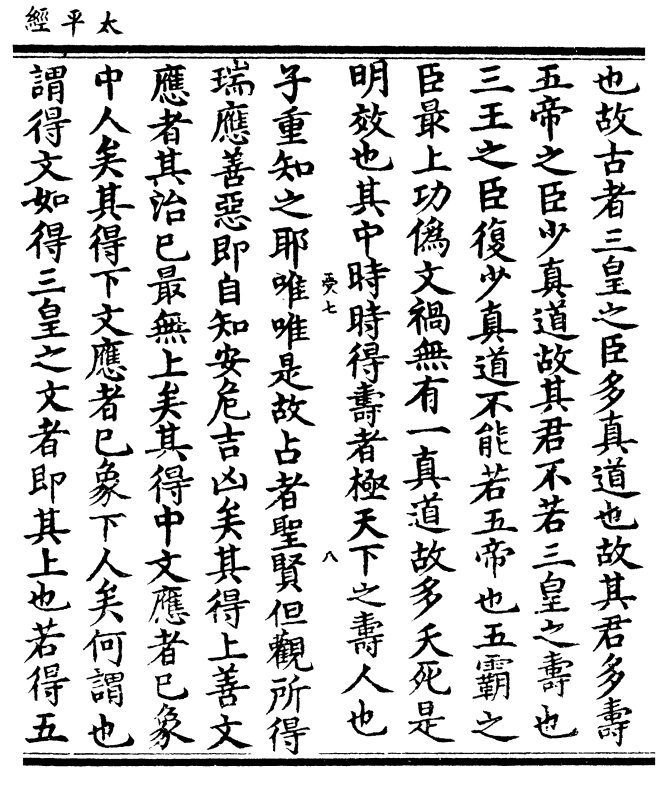 太平經
也故古者三皇之臣多真道也故其君多壽
五帝之臣少真道故其君不若三皇之壽也
三王之臣復少真道不能若五帝也五霸之
臣最上功僞文禍無有一真道故多夭死是
明效也其中時時得壽者極天下之壽人也
受七 八
子重知之耶唯唯是故占者聖賢但觀所得
瑞應善惡即自知安危吉凶矣其得上善文
應者其治已最無上矣其得中文應者已象
中人矣其得下文應者已象下人矣何謂也
謂得文如得三皇之文者即其上也若得五